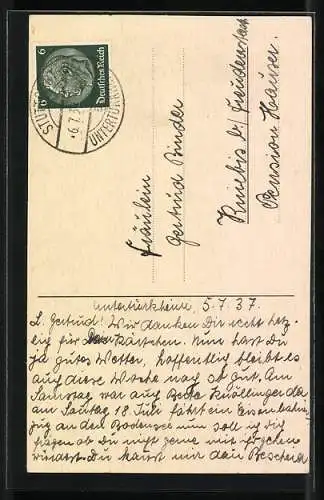 6 6
Deutsches Reich
STU
UNTERTÜRK
6.7.3
Fräulein
Gertrud Binder
Kniebis b/ Freudenstadt
Pension Haurer.
Untertürkheim, 5.7.37.
L. Gertrud! Wir danken Dir recht herz-
lich für Dein Kärtchen. Nun hast Du
ja gutes Wetter, hoffentlich bleibt es
auch diese Woche noch so gut. Am
Samstag war auch Berta da
am Sontag 18 Juli fährt ein Eisenbahn-
zug an den Bodensee nun soll ich dich
fragen ob Du nicht gerne mit
würdest. Du kannst mir dan Bescheid